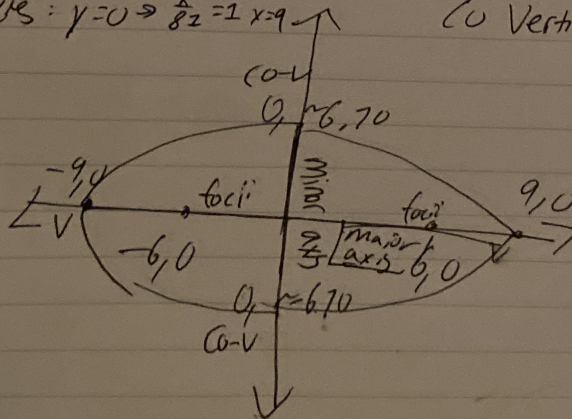 : y=0 ⇒ x/81 =1 x=9
Co Verti
Co-V
0, ~6,70
-9,0
focii
Minor
focii
9,0
V
-6,0
axis
major
axis
6,0
V
0, ≈6.70
Co-V